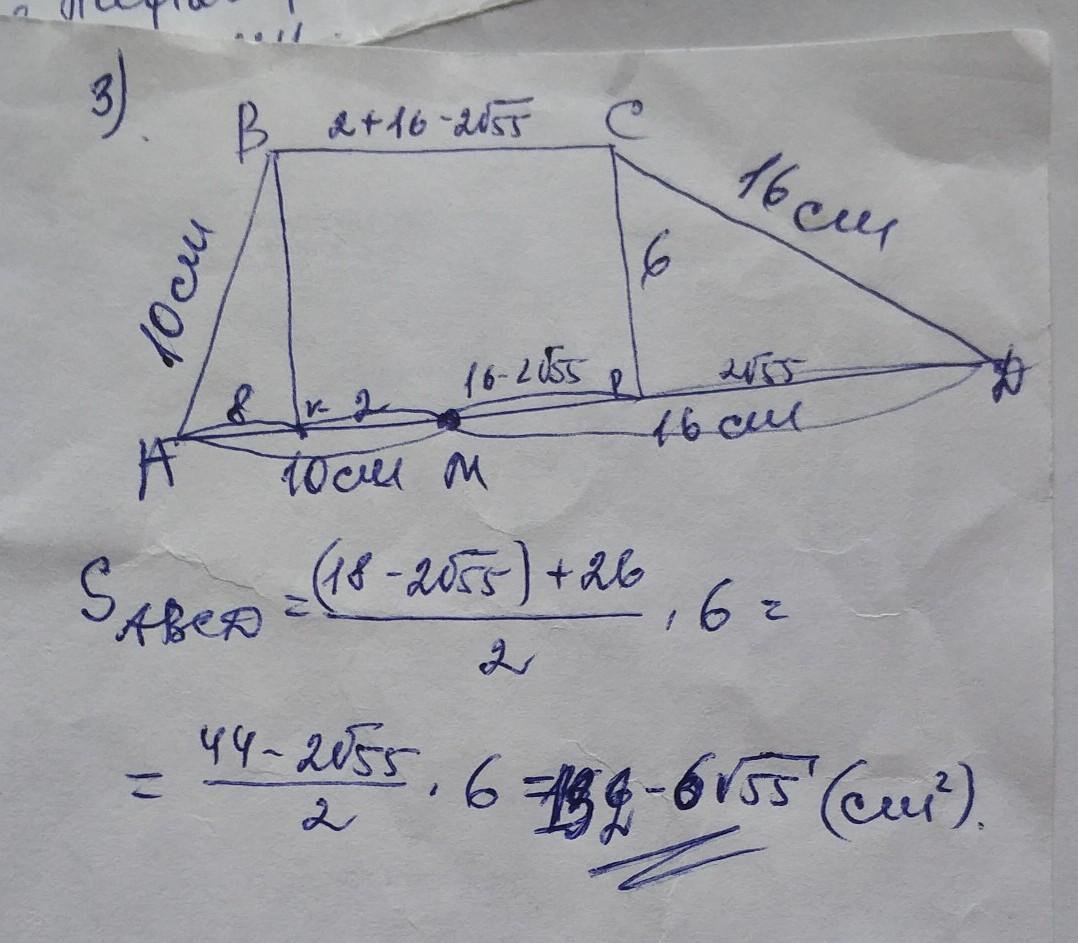 3)
B 2+16-2√55 C
10см
16 см
6
8 K 2 16-2√55 P 2√55
A 10см M 16 см D
S_ABCD = ((18-2√55)+26)/2 · 6 =
= (44-2√55)/2 · 6 = 132-6√55 (см²).